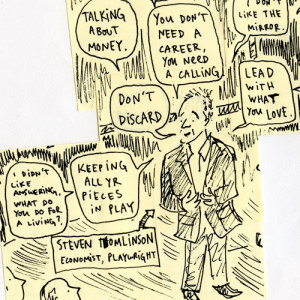 TALKING
ABOUT
MONEY.
YOU DON'T
NEED A
CAREER,
YOU NEED
A CALLING
I DON'T
LIKE THE
MIRROR.
LEAD
WITH
WHAT
YOU LOVE.
DON'T
DISCARD
I DIDN'T
LIKE ANSWERING,
WHAT DO
YOU DO FOR
A LIVING?
KEEPING
ALL YR
PIECES
IN PLAY
STEVEN TOMLINSON
ECONOMIST, PLAYWRIGHT